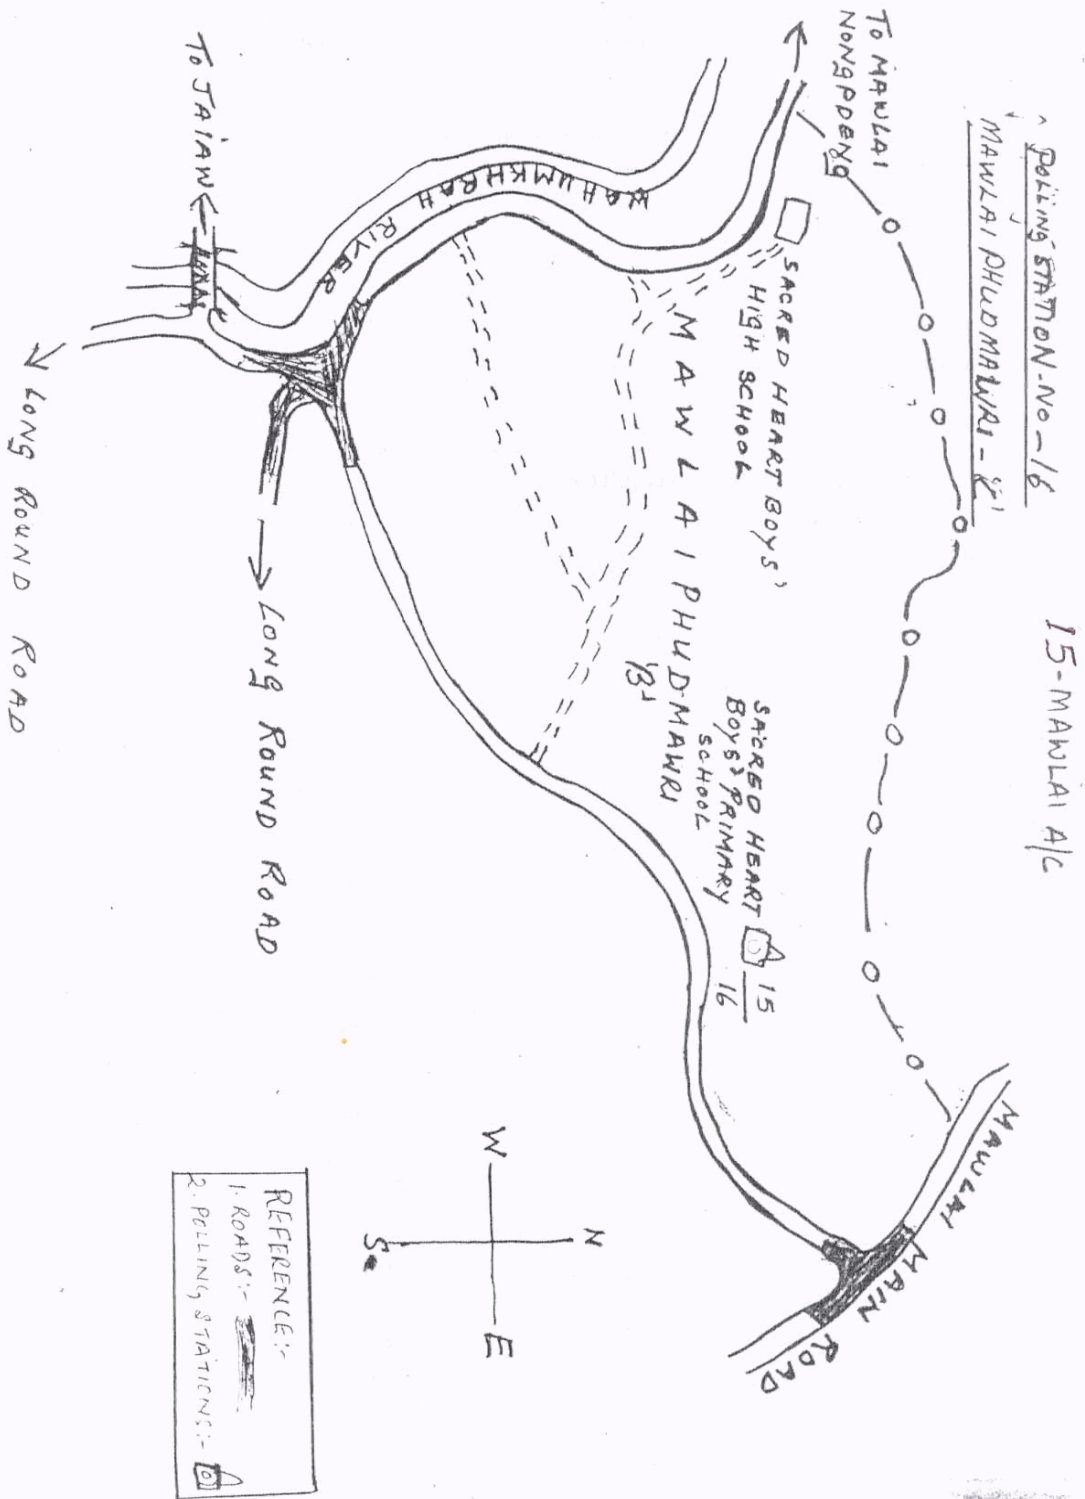 15-MAWLAI A/C
POLLING STATION-NO-16
MAWLAI PHUDMAWRI-
TO MAWLAI
NONGPDENG
SACRED HEART BOYS'
HIGH SCHOOL
MAWLAI PHUDMAWRI
'B'
SACRED HEART
BOYS' PRIMARY
SCHOOL
15
16
MAWLAI MAIN ROAD
WAHUMKHRAH RIVER
TO JAIAW
LONG ROUND ROAD
LONG ROUND ROAD
N
W
E
S
REFERENCE:-
1. ROADS:-
2. POLLING STATIONS:-